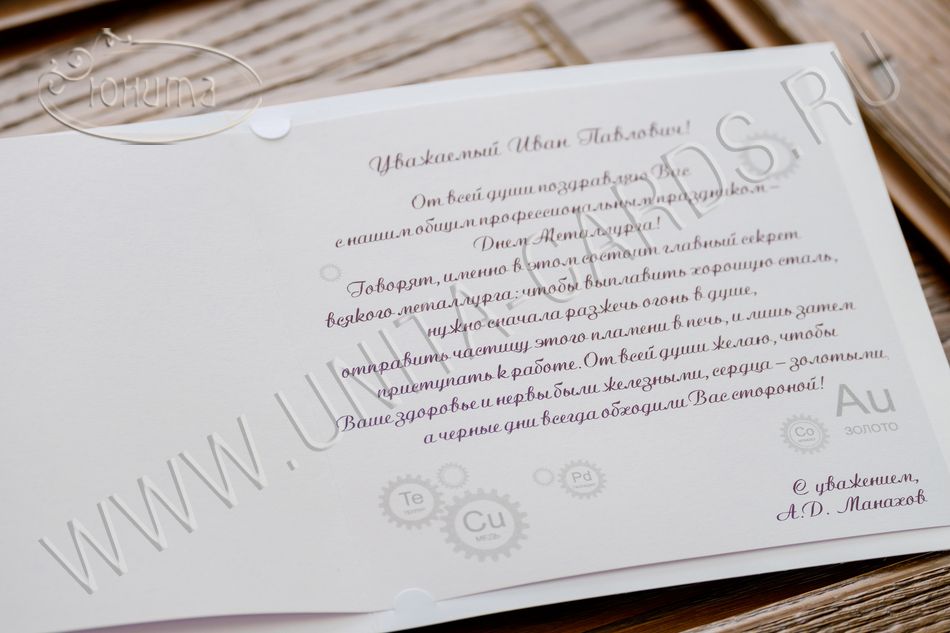 Юнита
Уважаемый Иван Павлович!
От всей души поздравляю Вас
с нашим общим профессиональным праздником –
Днем Металлурга!
Говорят, именно в этом состоит главный секрет
всякого металлурга: чтобы выплавить хорошую сталь,
нужно сначала разжечь огонь в душе,
отправить частицу этого пламени в печь, и лишь затем
приступать к работе. От всей души желаю, чтобы
Ваше здоровье и нервы были железными, сердца – золотыми,
а черные дни всегда обходили Вас стороной!
Au
ЗОЛОТО
Co
Pd
Te
Cu
МЕДЬ
С уважением,
А.Д. Манахов
WWW.UNITA-CARDS.RU